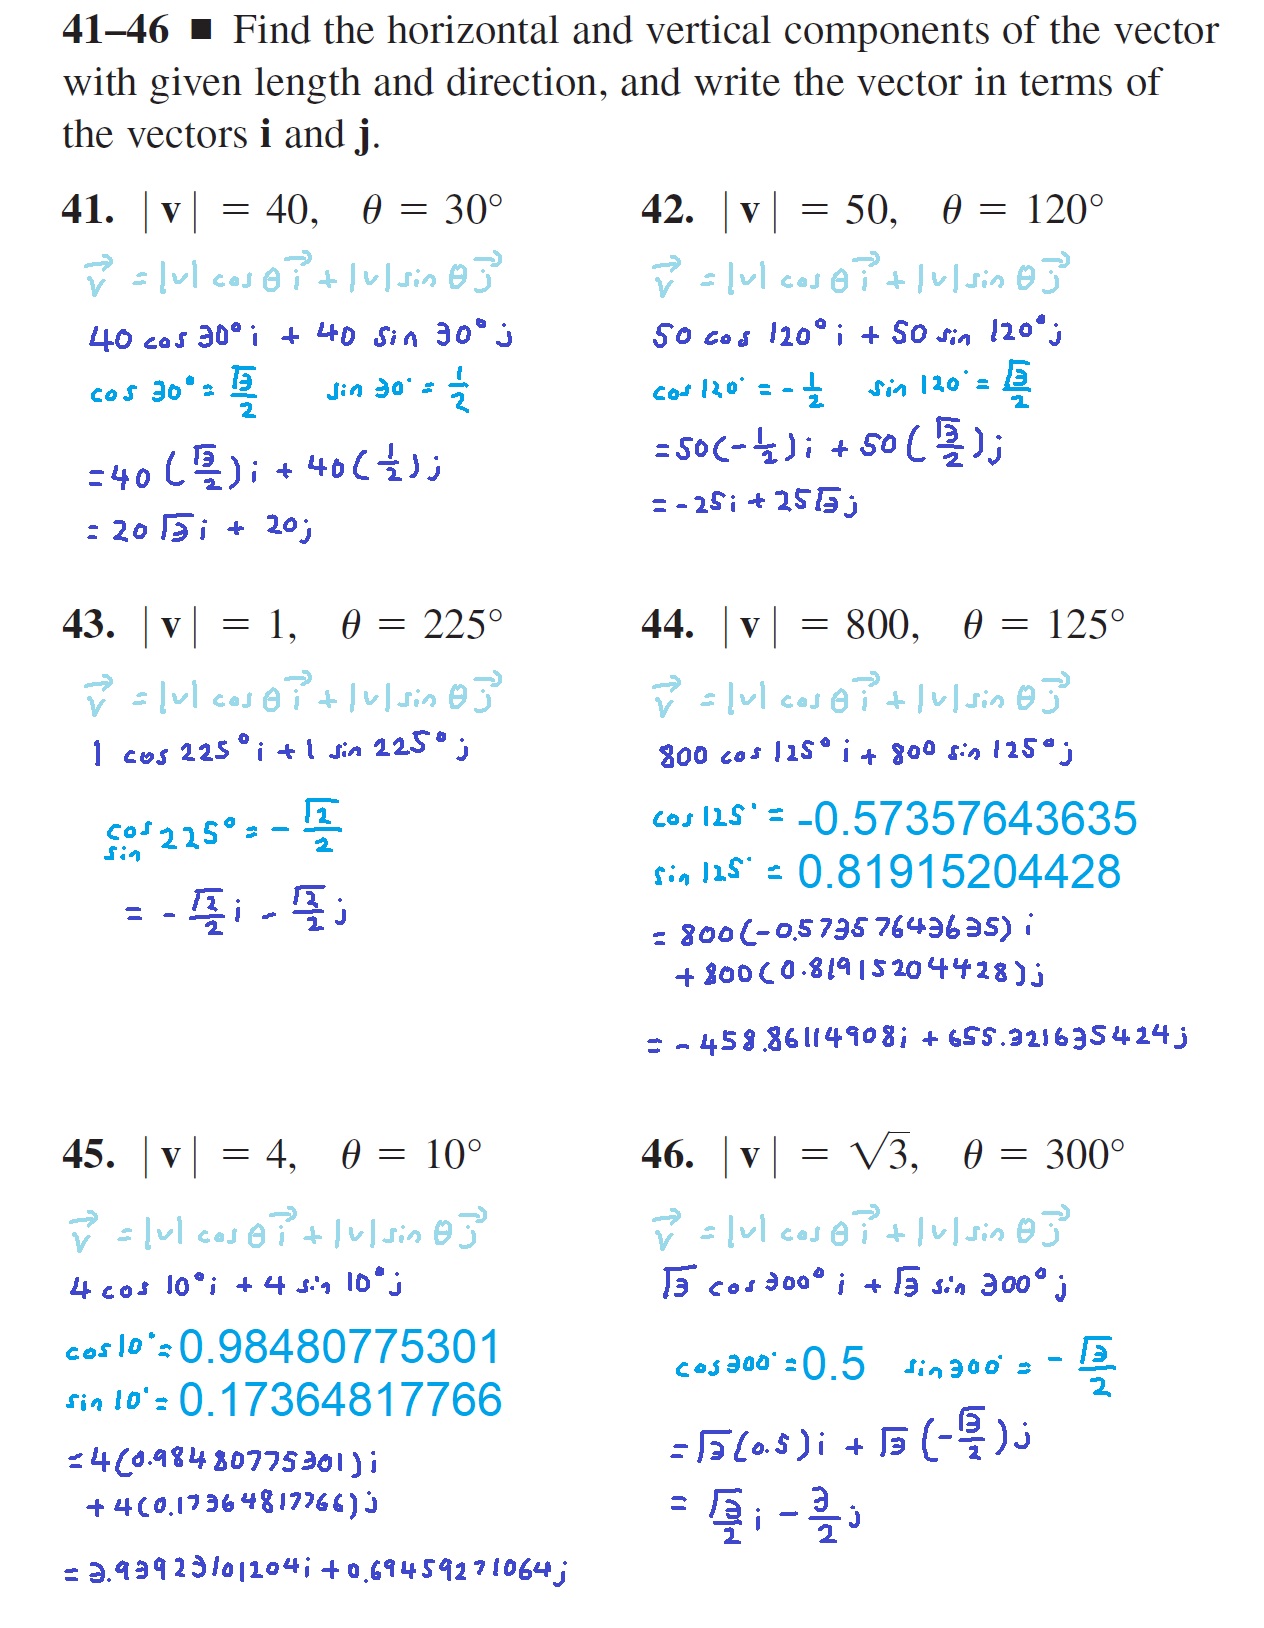 41–46 ■ Find the horizontal and vertical components of the vector
with given length and direction, and write the vector in terms of
the vectors i and j.
41. |v| = 40, θ = 30°
v⃗ = |v| cos θ i⃗ + |v| sin θ j⃗
40 cos 30° i + 40 sin 30° j
cos 30° = √3/2 sin 30° = 1/2
= 40 (√3/2) i + 40 (1/2) j
= 20 √3 i + 20 j
42. |v| = 50, θ = 120°
v⃗ = |v| cos θ i⃗ + |v| sin θ j⃗
50 cos 120° i + 50 sin 120° j
cos 120° = - 1/2 sin 120° = √3/2
= 50 (-1/2) i + 50 (√3/2) j
= - 25 i + 25 √3 j
43. |v| = 1, θ = 225°
v⃗ = |v| cos θ i⃗ + |v| sin θ j⃗
1 cos 225° i + 1 sin 225° j
cos 225° = - √2/2
sin
= - √2/2 i - √2/2 j
44. |v| = 800, θ = 125°
v⃗ = |v| cos θ i⃗ + |v| sin θ j⃗
800 cos 125° i + 800 sin 125° j
cos 125° = -0.57357643635
sin 125° = 0.81915204428
= 800 (-0.57357643635) i
+ 800 (0.81915204428) j
= - 458.86114908 i + 655.321635424 j
45. |v| = 4, θ = 10°
v⃗ = |v| cos θ i⃗ + |v| sin θ j⃗
4 cos 10° i + 4 sin 10° j
cos 10° = 0.98480775301
sin 10° = 0.17364817766
= 4 (0.98480775301) i
+ 4 (0.17364817766) j
= 3.93923101204 i + 0.69459271064 j
46. |v| = √3, θ = 300°
v⃗ = |v| cos θ i⃗ + |v| sin θ j⃗
√3 cos 300° i + √3 sin 300° j
cos 300° = 0.5 sin 300° = - √3/2
= √3 (0.5) i + √3 (-√3/2) j
= √3/2 i - 3/2 j